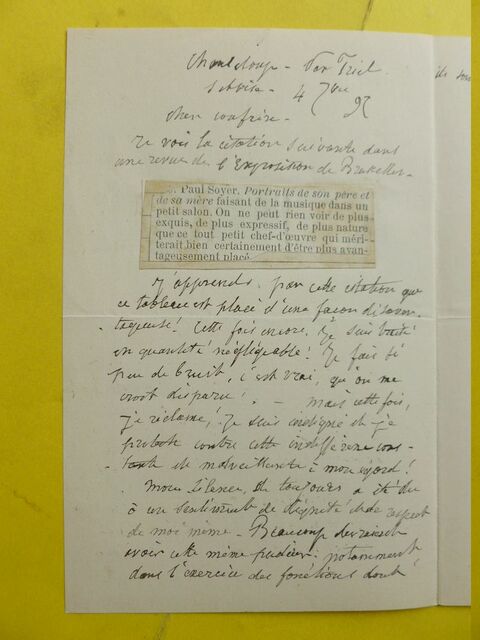 Chanteloup - Par Triel
S. et Oise - 4 7bre 97
Cher confrère -
Je vois la citation suivante dans
une revue de l'Exposition de Bruxelles -
Paul Soyer. Portraits de son père et
de sa mère faisant de la musique dans un
petit salon. On ne peut rien voir de plus
exquis, de plus expressif, de plus nature
que ce tout petit chef-d'œuvre qui méri-
terait bien certainement d'être plus avan-
tageusement placé.
J'apprends par cette citation que
ce tableau est placé d'une façon désavan-
tageuse! Cette fois encore, je suis traité
en quantité négligeable! Je fais si
peu de bruit, c'est vrai, qu'on me
croit disparu! - Mais cette fois,
je réclame! Je suis indigné et je
proteste contre cette indifférence cons-
tante et malveillante à mon égard!
Mon silence, de toujours a été dû
à un sentiment de dignité et de respect
de moi même - Beaucoup devraient
avoir cette même pudeur notamment
dans l'exercice des fonctions dont